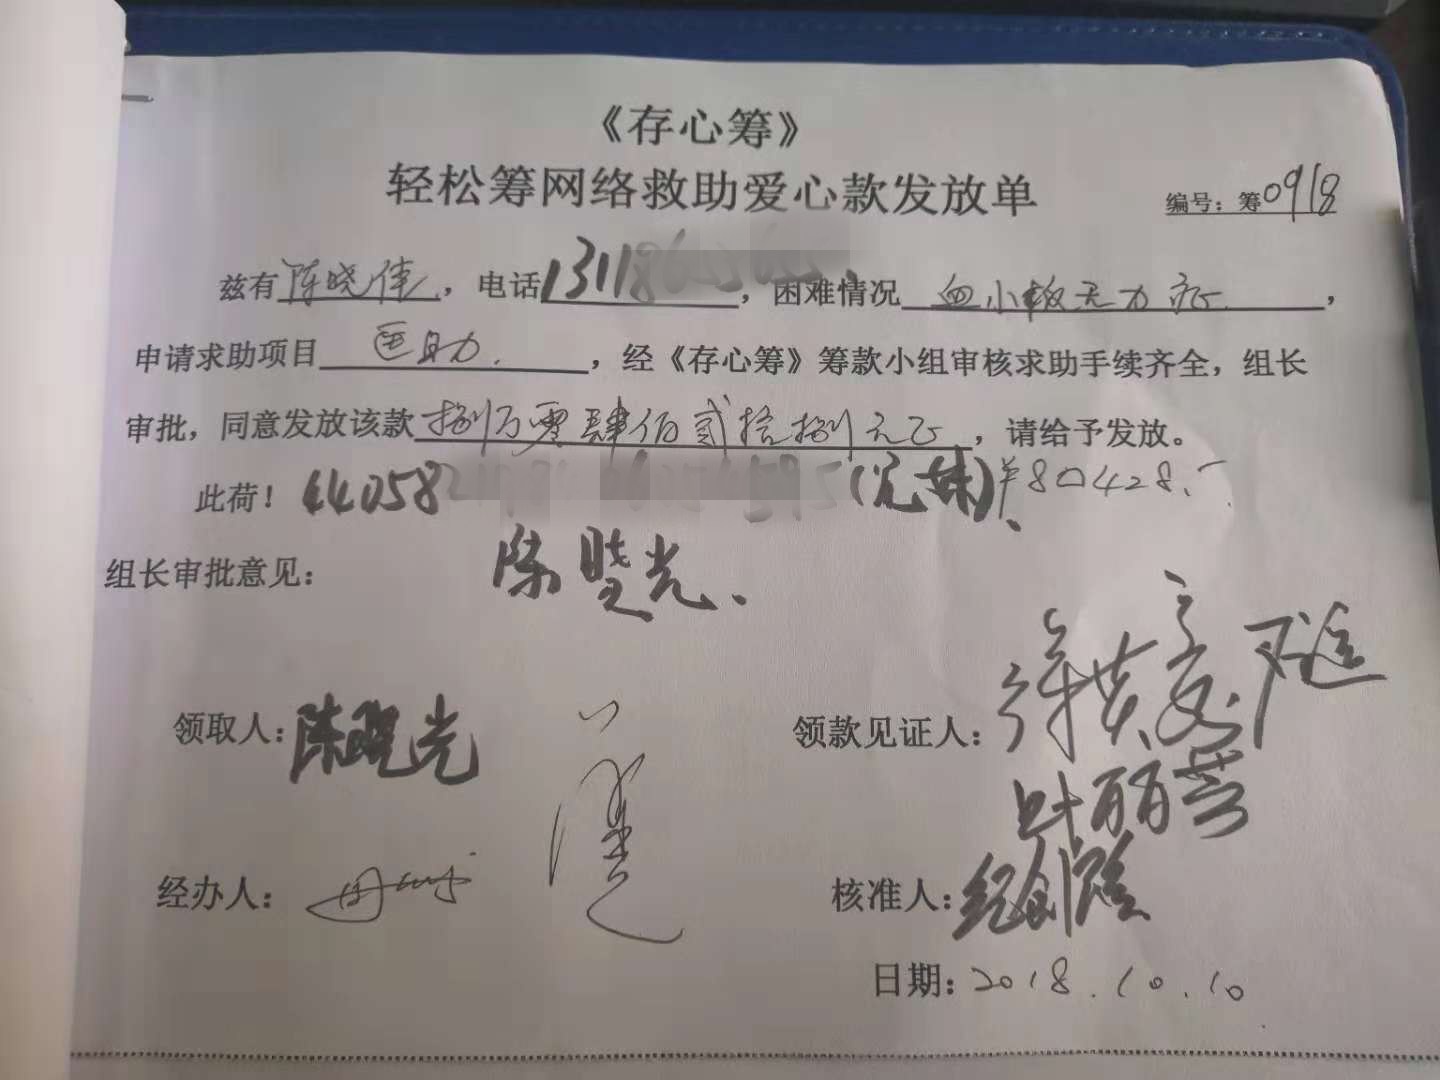 《存心筹》
轻松筹网络救助爱心款发放单
编号：筹0918
兹有陈晓伟，电话13118，困难情况血小板无力症，
申请求助项目医助.，经《存心筹》筹款小组审核求助手续齐全，组长
审批，同意发放该款捌万零肆佰贰拾捌元正，请给予发放。
此荷！44058(兄妹)¥80428.-
组长审批意见：陈晓光.
领取人：陈晓光
领款见证人：
叶丽芸
经办人：
核准人：纪创隆
日期：2018.10.10